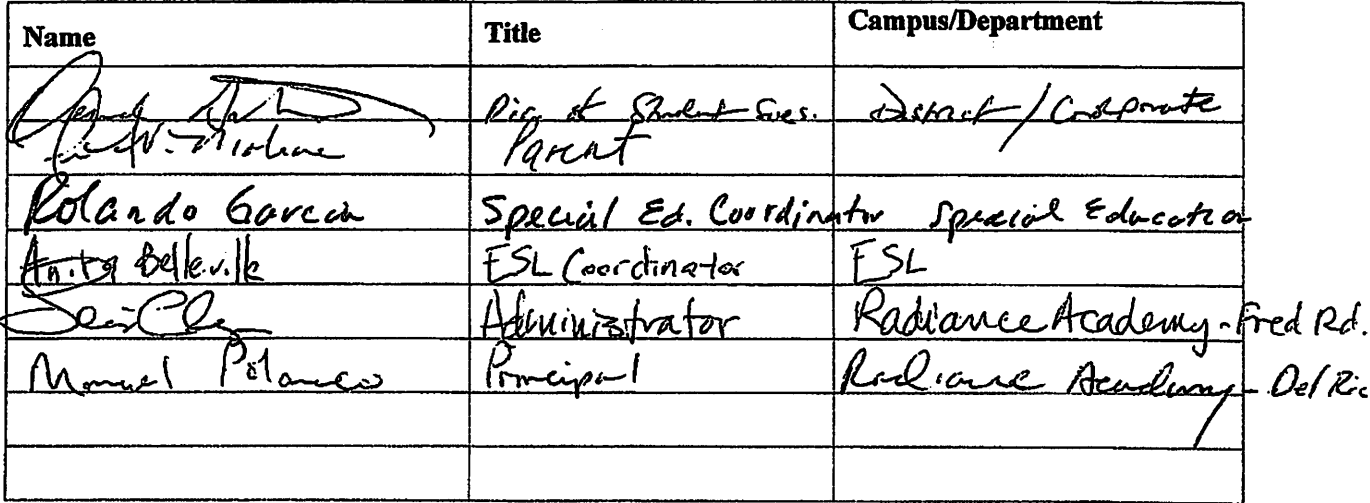 Name Title Campus/Department
Dir. of Student Svcs. District / Corporate
Parent
Rolando Garcia Special Ed. Coordinator Special Education
Anita Belleville ESL Coordinator ESL
Administrator Radiance Academy - Fred Rd.
Manuel Polanco Principal Radiance Academy - Del Rio